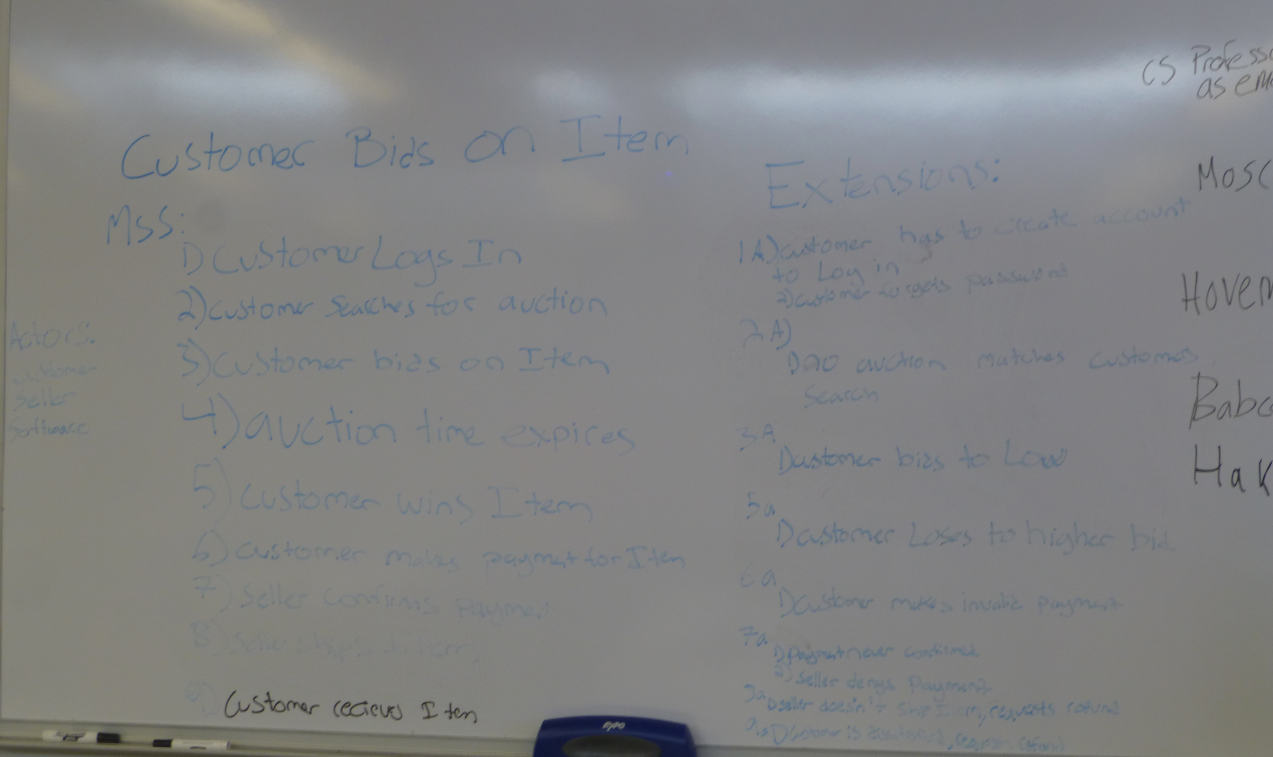 Customer Bids on Item
MSS:
1) Customer Logs In
2) customer searches for auction
3) Customer bids on Item
4) auction time expires
5) Customer wins Item
6) customer makes paymet for Item
7) Seller confirms payment
8) Seller ships Item
9) Customer recieves Item
Actors:
customer
Seller
Software
Extensions:
1A) customer has to create account
to Log in
2) customer forgets password
2A)
1) no auction matches customers
search
3A
1) customer bids to Low
5a
1) customer Loses to higher bid
6a
1) customer makes invalid payment
7a
1) payment never confirmed
2) Seller denys Payment
1) seller doesn't ship Item, requests refund
9a 1) customer is refund
CS Profess
as em
Mosc
Hoven
Babc
Hak
expo